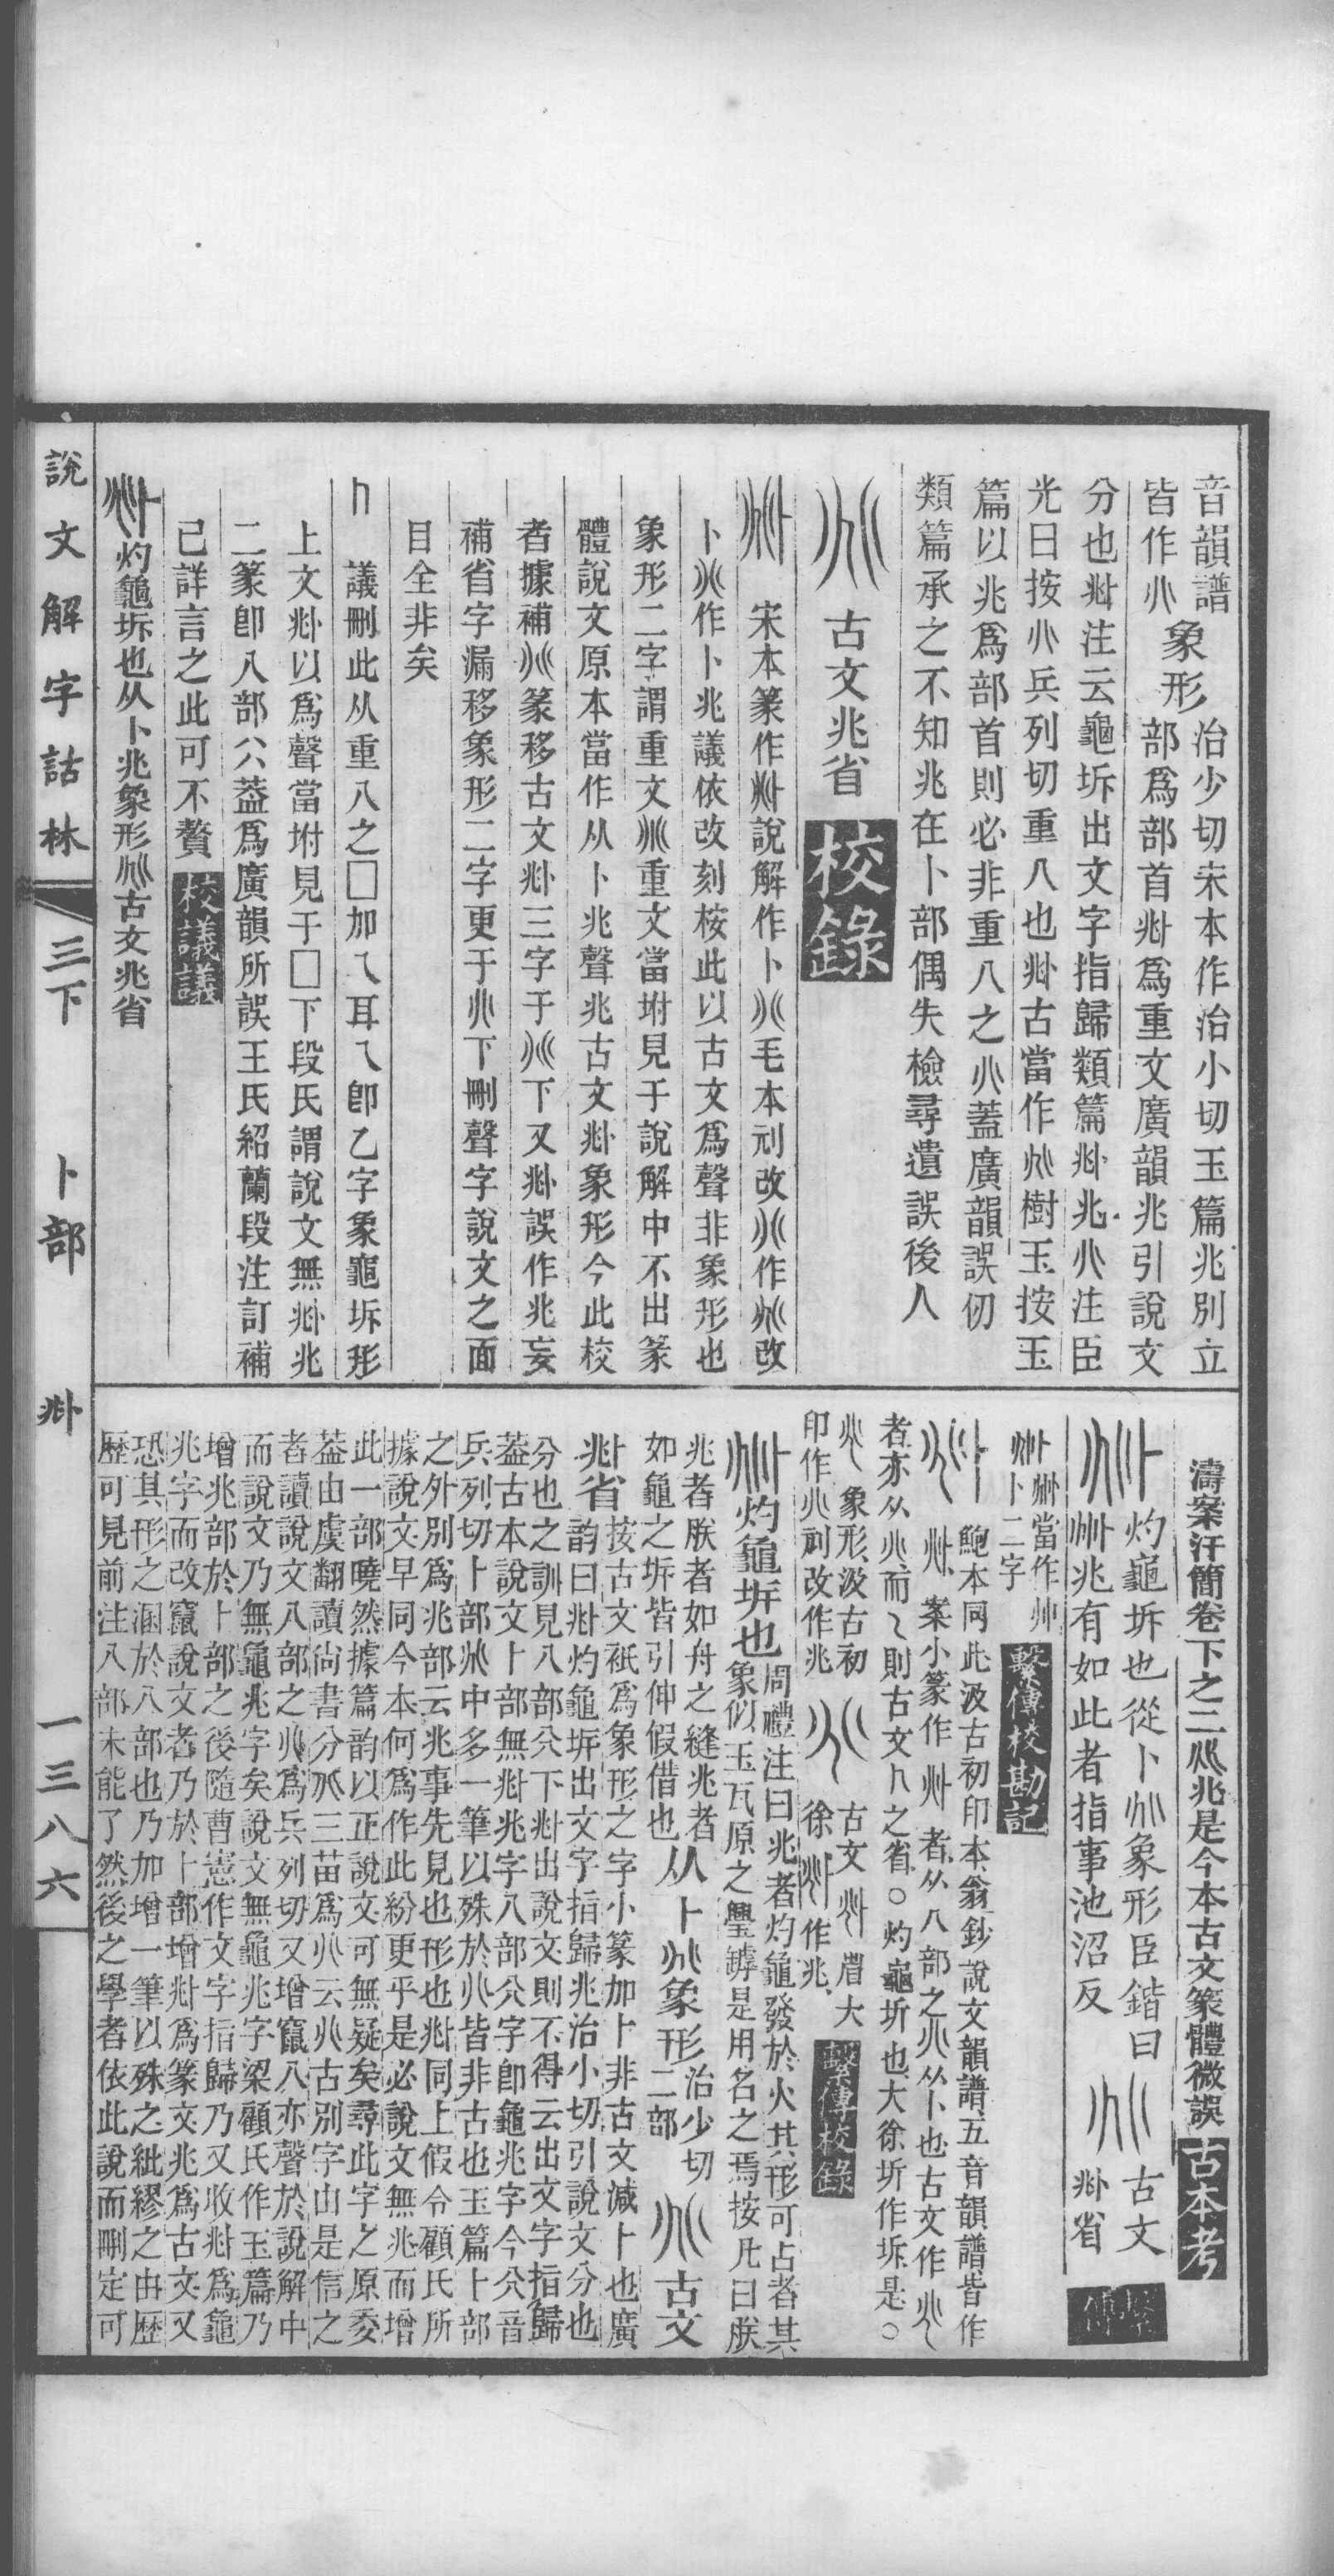 音韻譜
皆作㕣象形治少切宋本作治小切玉篇兆別立
部爲部首𠧞爲重文廣韻兆引說文
分也𠧞注云龜坼出文字指歸類篇𠧞兆㕣注臣
光曰按㕣兵列切重八也𠧞古當作𠧞樹玉按玉
篇以兆爲部首則必非重八之㕣蓋廣韻誤仞
類篇承之不知兆在卜部偶失檢尋遺誤後人
古文兆省 校錄
宋本篆作𠧞說解作卜兆毛本剜改兆作兆改
卜兆作卜兆議依改刻桉此以古文爲聲非象形也
象形二字謂重文兆重文當坿見于說解中不出篆
體說文原本當作从卜兆聲兆古文𠧞象形今此校
者據補兆篆移古文𠧞三字于兆下又𠧞誤作兆妄
補省字漏移象形二字更于兆下刪聲字說文之面
目全非矣
議刪此从重八之□加乀耳乀卽乙字象龜坼形
上文𠧞以爲聲當坿見于□下段氏謂說文無𠧞兆
二篆卽八部㕣葢爲廣韻所誤王氏紹蘭段注訂補
已詳言之此可不贅 校議議
𠧞灼龜坼也从卜兆象形兆古文兆省
濤案汗簡卷下之二兆兆是今本古文篆體微誤 古本考
𠧞灼龜坼也從卜兆象形臣鍇曰
𠧞兆有如此者指事池沼反
古文
𠧞省 繫傳
當作
卜二字 繫傳校勘記
鮑本同此汲古初印本翁鈔說文韻譜五音韻譜皆作
案小篆作𠧞者从八部之㕣从卜也古文作兆
者亦从㕣而乀則古文卜之省○灼龜坼也大徐坼作㙛是○
兆象形汲古初
印作㕣剜改作兆
古文𠧞眉大
徐𠧞作兆 繫傳校錄
𠧞灼龜坼也周禮注曰兆者灼龜發於火其形可占者其
象似玉瓦原之舋罅是用名之焉按凡曰朕
兆者朕者如舟之縫兆者
如龜之坼皆引伸假借也从卜兆象形治少切
二部
古文
𠧞省按古文衹爲象形之字小篆加卜非古文減卜也廣
韵曰𠧞灼龜坼出文字指歸兆治小切引說文分也
分也之訓見八部㕣下𠧞出說文則不得云出文字指歸
葢古本說文卜部無𠧞兆字八部㕣字卽龜兆字今㕣音
兵列切卜部兆中多一筆以殊於㕣皆非古也玉篇卜部
之外別爲兆部云兆事先見也形也𠧞同上假令顧氏所
據說文早同今本何爲作此紛更乎是必說文無兆而增
此一部曉然據篇韵以正說文可無疑矣尋此字之原委
葢由虞翻讀尙書分北三苗爲㕣云㕣古別字由是信之
者讀說文八部之㕣爲兵列切又增竄八亦聲於說解中
而說文乃無龜兆字矣說文無龜兆字梁顧氏作玉篇乃
增兆部於卜部之後隨曹憲作文字指歸乃又收𠧞爲龜
兆字而改竄說文者乃於卜部增𠧞爲篆文兆爲古文又
恐其形之溷於八部也乃加增一筆以殊之紕繆之由歴
歴可見前注八部未能了然後之學者依此說而刪定可
說文解字詁林 三下 卜部 𠧞 一三八六